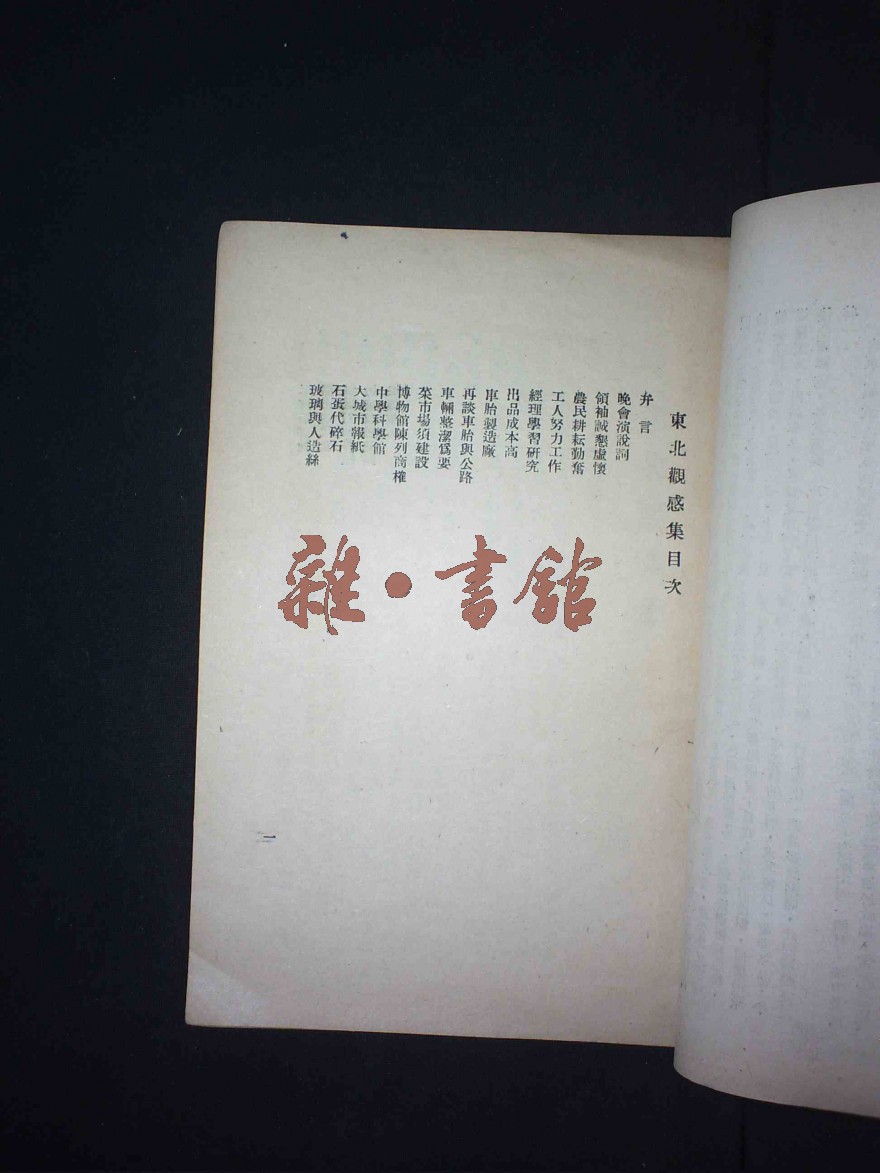 東北觀感集目次
弁言
晚會演說詞
領袖誠懇虛懷
農民耕耘勤奮
工人努力工作
經理學習研究
出品成本高
車胎製造廠
再談車胎與公路
車輛整潔爲要
菜市場須建設
博物館陳列商權
中學科學館
大城市報紙
石蛋代碎石
玻璃與人造絲
一
雜·書館